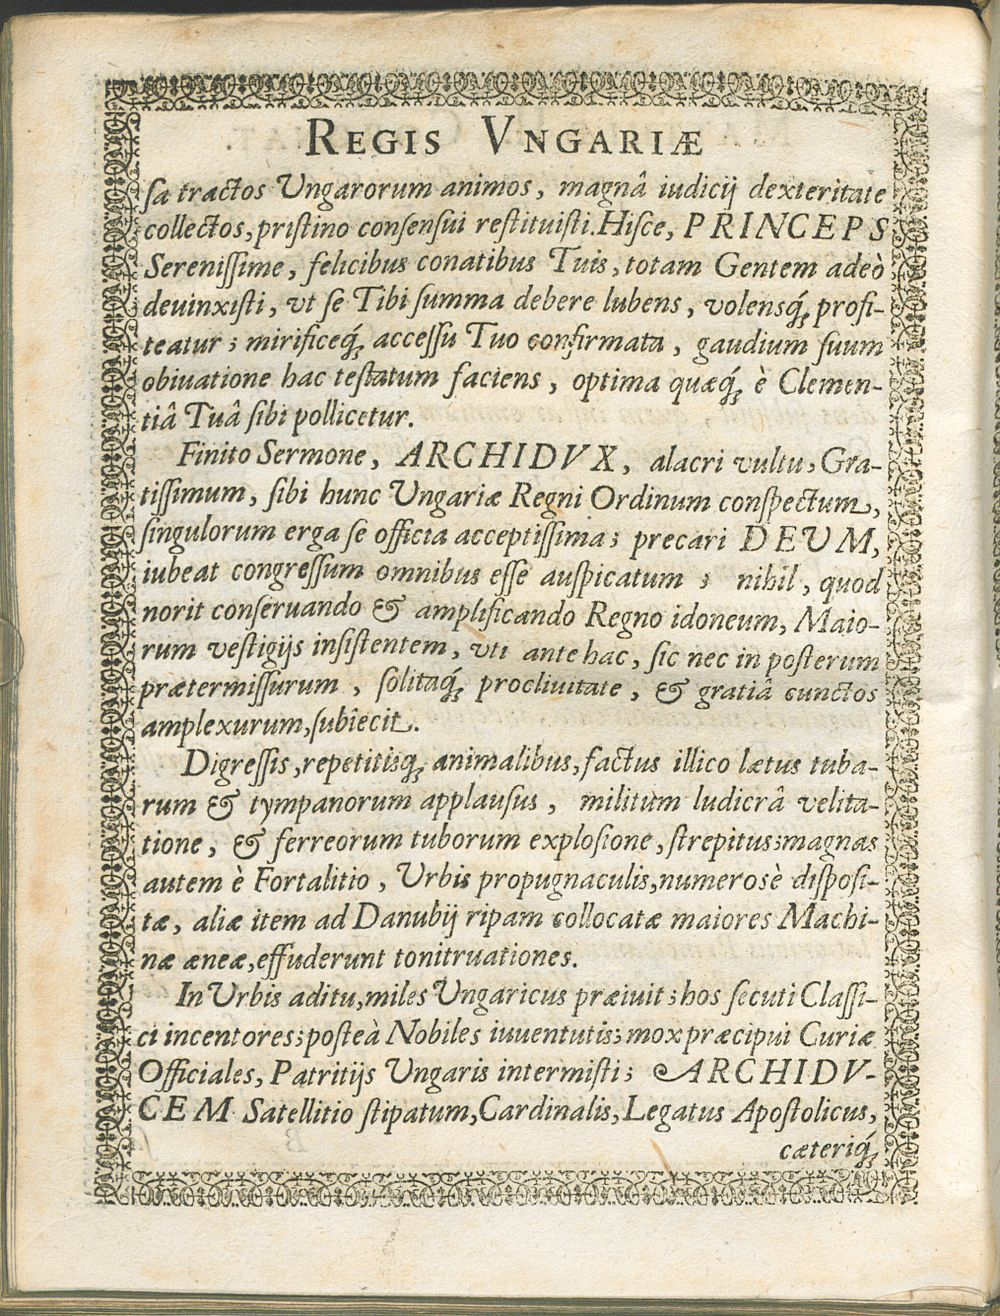 REGIS VNGARIÆ
sa tractos Ungarorum animos, magnâ iudicij dexteritate
collectos, pristino consensui restituisti. Hisce, PRINCEPS
Serenissime, felicibus conatibus Tuis, totam Gentem adeò
deuinxisti, vt se Tibi summa debere lubens, volensq́; profi-
teatur; mirificeq́; accessu Tuo confirmata, gaudium suum
obiuatione hac testatum faciens, optima quæq́; è Clemen-
tiâ Tuâ sibi pollicetur.
Finito Sermone, ARCHIDVX, alacri vultu, Gra-
tissimum, sibi hunc Ungariæ Regni Ordinum conspectum,
singulorum erga se officia acceptissima; precari DEUM,
iubeat congressum omnibus esse auspicatum; nihil, quod
norit conseruando & amplificando Regno idoneum, Maio-
rum vestigijs insistentem, vti ante hac, sic nec in posterum
prætermissurum, solitaq́; procliuitate, & gratiâ cunctos
amplexurum, subiecit.
Digressis, repetitisq; animalibus, factus illico lætus tuba-
rum & tympanorum applausus, militum ludicrâ velita-
tione, & ferreorum tuborum explosione, strepitus; magnas
autem è Fortalitio, Urbis propugnaculis, numerosè disposi-
tæ, aliæ item ad Danubij ripam collocatæ maiores Machi-
næ æneæ, effuderunt tonitruationes.
In Urbis aditu, miles Ungaricus præiuit; hos secuti Classi-
ci incentores; posteà Nobiles iuuentutis; mox præcipui Curiæ
Officiales, Patritijs Ungaris intermisti; ARCHIDV-
CEM Satellitio stipatum, Cardinalis, Legatus Apostolicus,
cæteriq́;